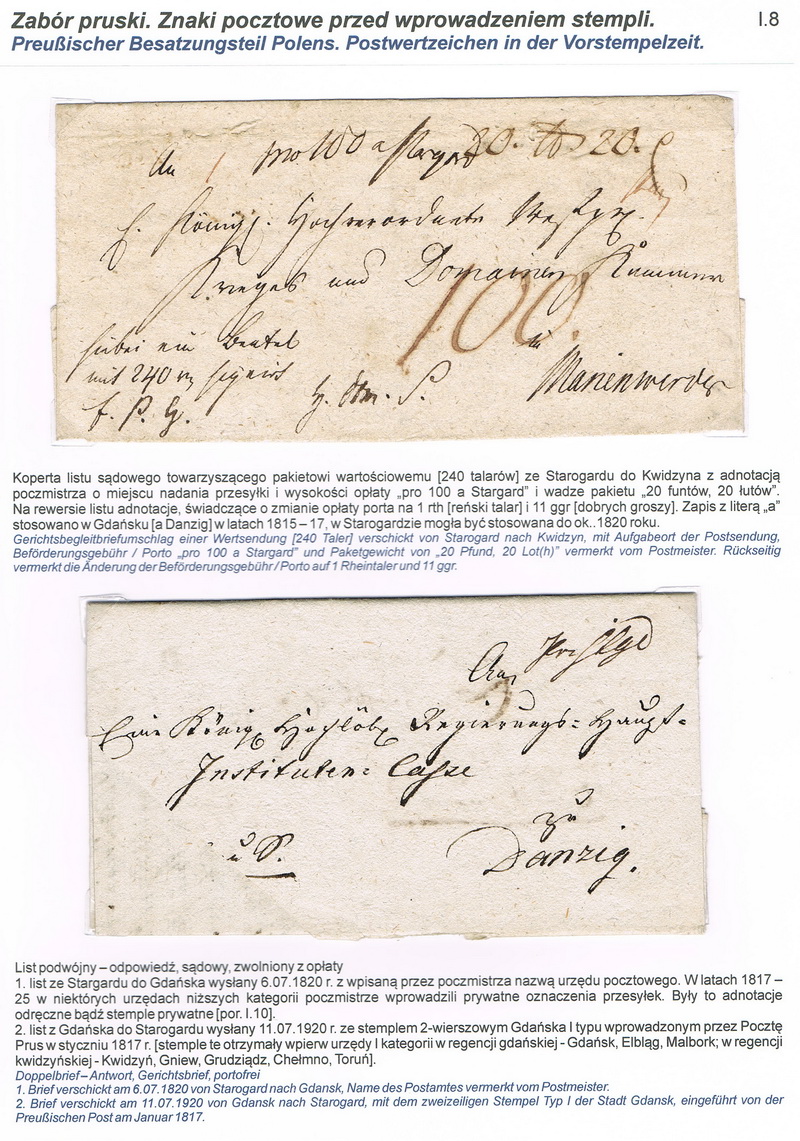 Zabór pruski. Znaki pocztowe przed wprowadzeniem stempli.
I.8
Preußischer Besatzungsteil Polens. Postwertzeichen in der Vorstempelzeit.
An pro 100 a Stargard 20. 20.
E. Königl. Hochverordnete Westpr.
Krieges und Domainen Kammer
100.
hiebei ein Beutel
mit 240 signirt
Marienwerder
Koperta listu sądowego towarzyszącego pakietowi wartościowemu [240 talarów] ze Starogardu do Kwidzyna z adnotacją
poczmistrza o miejscu nadania przesyłki i wysokości opłaty „pro 100 a Stargard” i wadze pakietu „20 funtów, 20 łutów”.
Na rewersie listu adnotacje, świadczące o zmianie opłaty porta na 1 rth [reński talar] i 11 ggr [dobrych groszy]. Zapis z literą „a”
stosowano w Gdańsku [a Danzig] w latach 1815 – 17, w Starogardzie mogła być stosowana do ok..1820 roku.
Gerichtsbegleitbriefumschlag einer Wertsendung [240 Taler] verschickt von Starogard nach Kwidzyn, mit Aufgabeort der Postsendung,
Beförderungsgebühr / Porto „pro 100 a Stargard” und Paketgewicht von „20 Pfund, 20 Lot(h)” vermerkt vom Postmeister. Rückseitig
vermerkt die Änderung der Beförderungsgebühr / Porto auf 1 Rheintaler und 11 ggr.
An
Eine Königl Hochlöbl Regierungs= Haupt=
Instituten= Casse
zu
Danzig.
List podwójny – odpowiedź, sądowy, zwolniony z opłaty
1. list ze Stargardu do Gdańska wysłany 6.07.1820 r. z wpisaną przez poczmistrza nazwą urzędu pocztowego. W latach 1817 –
25 w niektórych urzędach niższych kategorii poczmistrze wprowadzili prywatne oznaczenia przesyłek. Były to adnotacje
odręczne bądź stemple prywatne [por. I.10].
2. list z Gdańska do Starogardu wysłany 11.07.1920 r. ze stemplem 2-wierszowym Gdańska I typu wprowadzonym przez Pocztę
Prus w styczniu 1817 r. [stemple te otrzymały wpierw urzędy I kategorii w regencji gdańskiej - Gdańsk, Elbląg, Malbork; w regencji
kwidzyńskiej - Kwidzyń, Gniew, Grudziądz, Chełmno, Toruń].
Doppelbrief – Antwort, Gerichtsbrief, portofrei
1. Brief verschickt am 6.07.1820 von Starogard nach Gdansk, Name des Postamtes vermerkt vom Postmeister.
2. Brief verschickt am 11.07.1920 von Gdansk nach Starogard, mit dem zweizeiligen Stempel Typ I der Stadt Gdansk, eingeführt von der
Preußischen Post am Januar 1817.